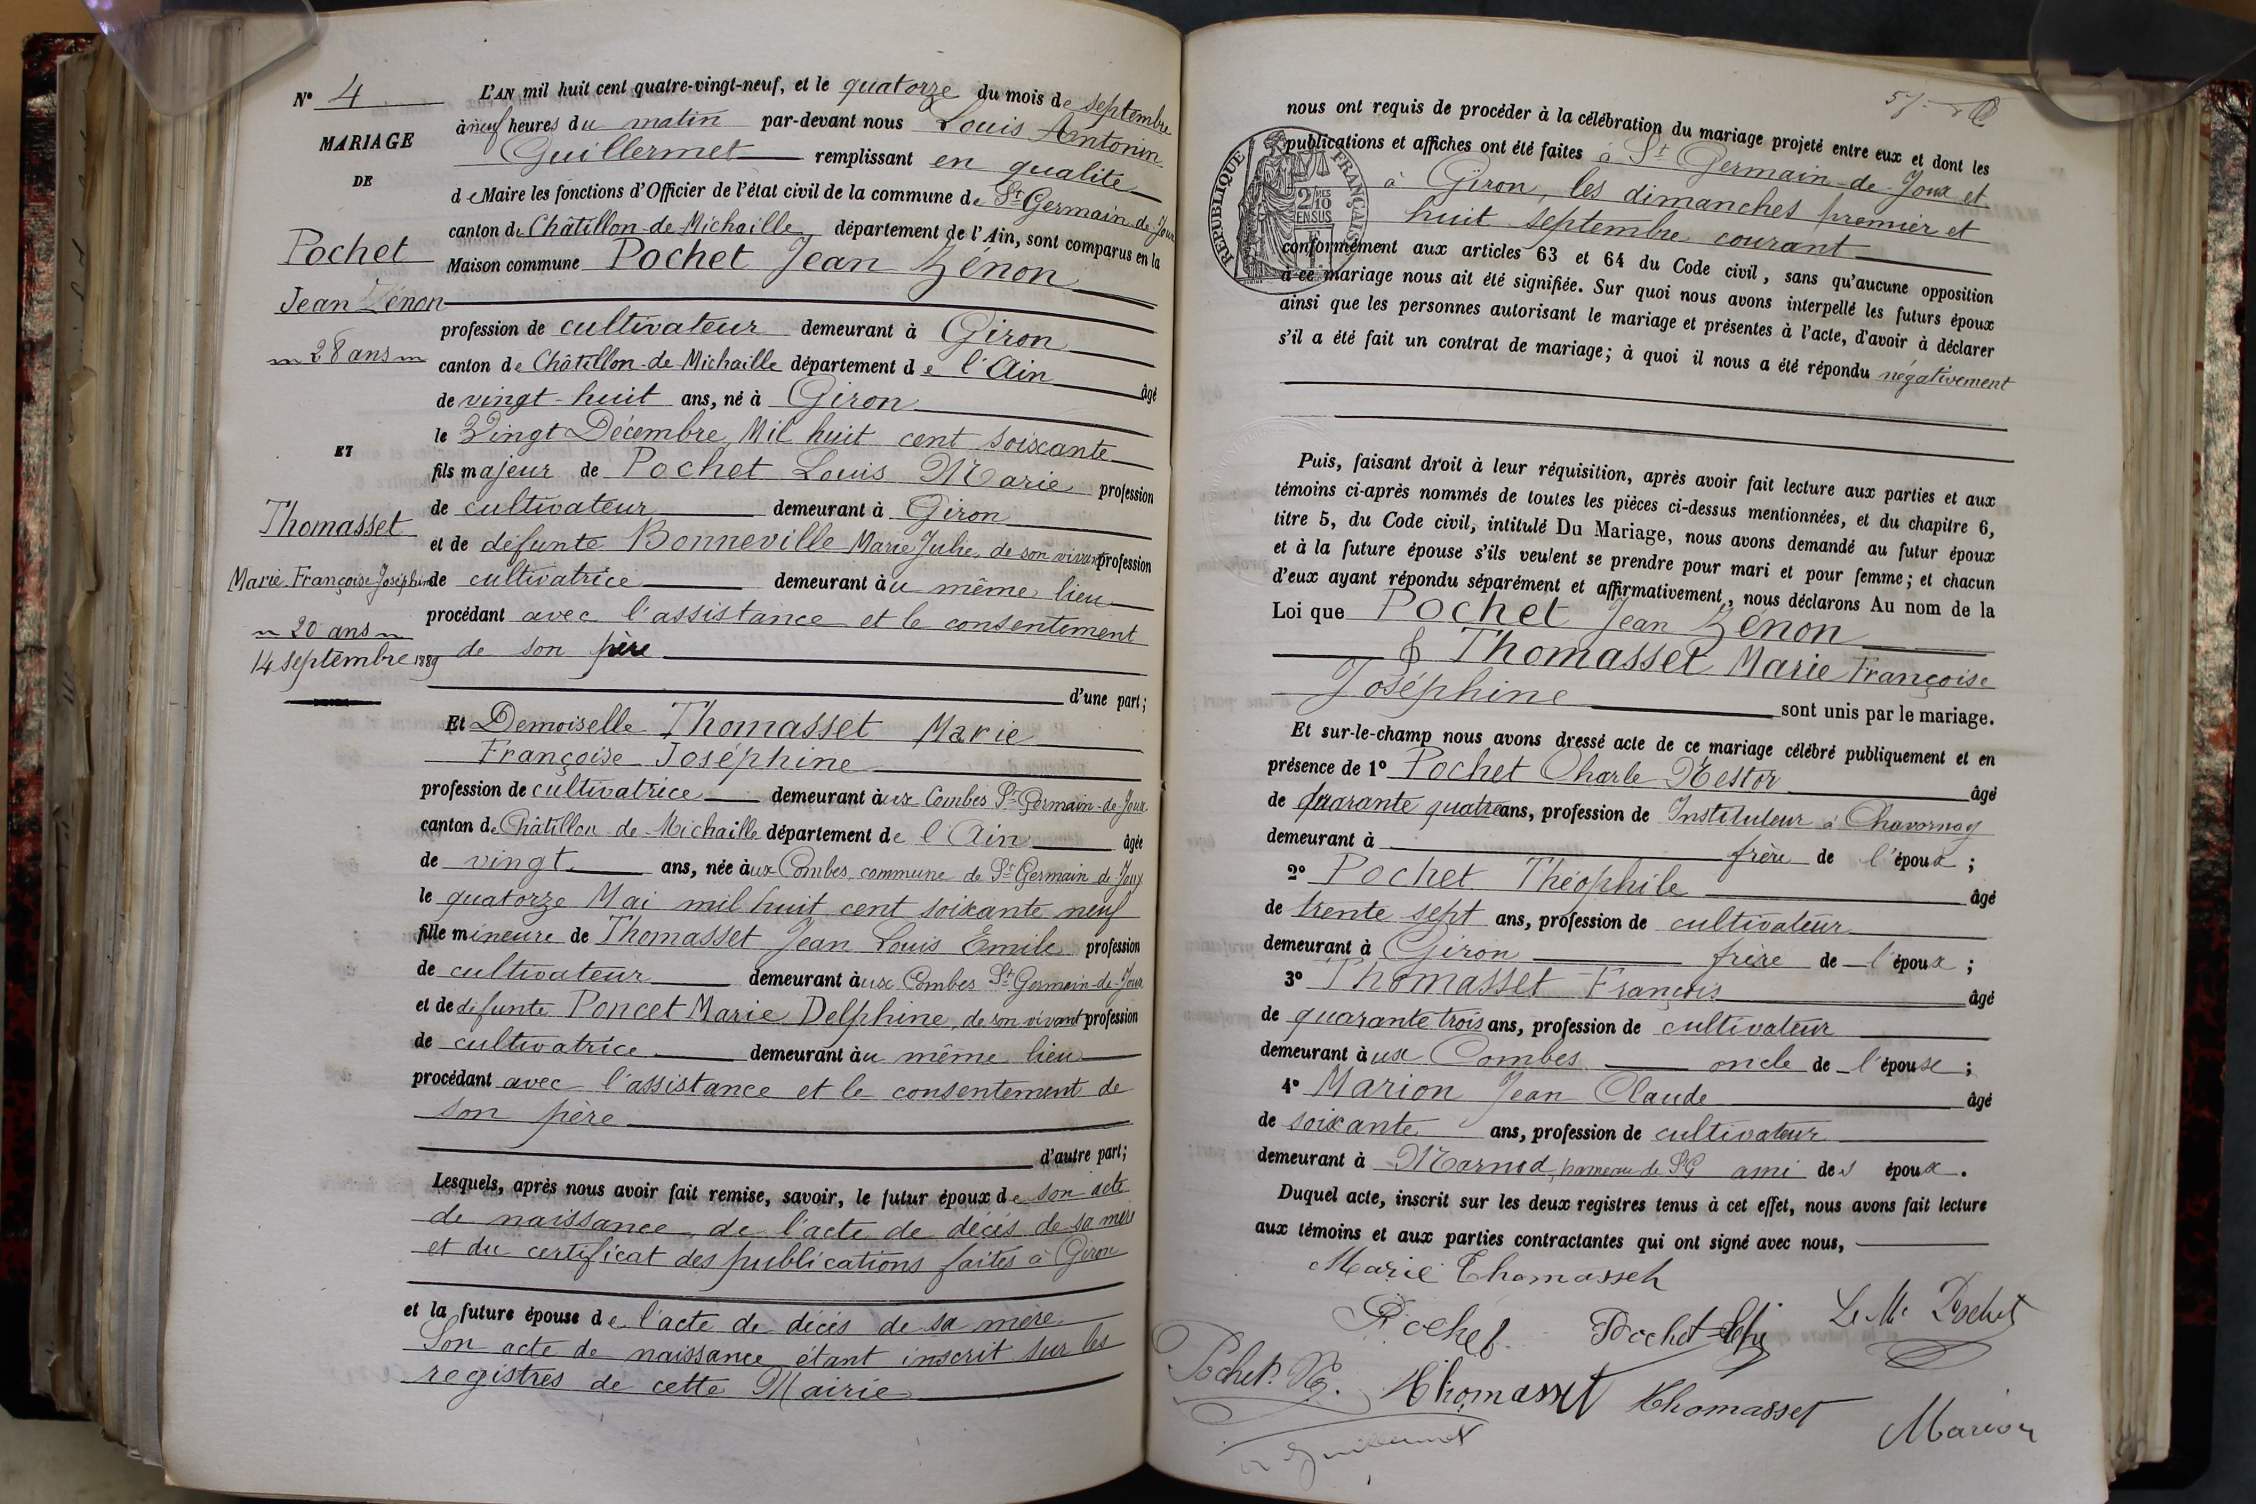 N° 4
MARIAGE
DE
Pochet
Jean Zénon
28 ans
ET
Thomasset
Marie Françoise Joséphine
20 ans
14 septembre 1889
L'AN mil huit cent quatre-vingt-neuf, et le quatorze du mois de septembre
à neuf heures du matin par-devant nous Louis Antonin
Guillermet remplissant en qualité
de Maire les fonctions d'Officier de l'état civil de la commune de St Germain-de-Joux
canton de Châtillon-de-Michaille département de l'Ain, sont comparus en la
Maison commune Pochet Jean Zénon
profession de cultivateur demeurant à Giron
canton de Châtillon-de-Michaille département de l'Ain
âgé
de vingt-huit ans, né à Giron
le Vingt Décembre Mil huit cent soixante
fils majeur de Pochet Louis Marie profession
de cultivateur demeurant à Giron
et de défunte Bonneville Marie Julie de son vivant profession
de cultivatrice demeurant àu même lieu
procédant avec l'assistance et le consentement
de son père
d'une part;
Et Demoiselle Thomasset Marie
Françoise Joséphine
profession de cultivatrice demeurant àux Combes St Germain-de-Joux
canton de Châtillon-de-Michaille département de l'Ain âgée
de vingt ans, née àux Combes commune de St Germain de Joux
le quatorze Mai mil huit cent soixante neuf
fille mineure de Thomasset Jean Louis Emile profession
de cultivateur demeurant àux Combes St Germain-de-Joux
et de défunte Poncet Marie Delphine, de son vivant profession
de cultivatrice demeurant àu même lieu
procédant avec l'assistance et le consentement de
son père
d'autre part;
Lesquels, après nous avoir fait remise, savoir, le futur époux de son acte
de naissance, de l'acte de décès de sa mère
et du certificat des publications faites à Giron
et la future épouse de l'acte de décès de sa mère
Son acte de naissance étant inscrit sur les
registres de cette Mairie
nous ont requis de procéder à la célébration du mariage projeté entre eux et dont les
publications et affiches ont été faites à St Germain-de-Joux et
à Giron, les dimanches premier et
huit septembre courant
conformément aux articles 63 et 64 du Code civil, sans qu'aucune opposition
à ce mariage nous ait été signifiée. Sur quoi nous avons interpellé les futurs époux
ainsi que les personnes autorisant le mariage et présentes à l'acte, d'avoir à déclarer
s'il a été fait un contrat de mariage; à quoi il nous a été répondu négativement
RÉPUBLIQUE FRANÇAISE
2/10
EN SUS
Puis, faisant droit à leur réquisition, après avoir fait lecture aux parties et aux
témoins ci-après nommés de toutes les pièces ci-dessus mentionnées, et du chapitre 6,
titre 5, du Code civil, intitulé Du Mariage, nous avons demandé au futur époux
et à la future épouse s'ils veulent se prendre pour mari et pour femme; et chacun
d'eux ayant répondu séparément et affirmativement, nous déclarons Au nom de la
Loi que Pochet Jean Zénon
& Thomasset Marie Françoise
Joséphine sont unis par le mariage.
Et sur-le-champ nous avons dressé acte de ce mariage célébré publiquement et en
présence de 1° Pochet Charle Nestor âgé
de quarante quatre ans, profession de Instituteur à Chavornay
demeurant à frère de l'époux;
2° Pochet Théophile âgé
de trente sept ans, profession de cultivateur
demeurant à Giron frère de l'époux;
3° Thomasset François âgé
de quarante trois ans, profession de cultivateur
demeurant àux Combes oncle de l'épouse;
4° Marion Jean Claude âgé
de soixante ans, profession de cultivateur
demeurant à Marnod, hameau de St G ami des époux.
Duquel acte, inscrit sur les deux registres tenus à cet effet, nous avons fait lecture
aux témoins et aux parties contractantes qui ont signé avec nous,
Marie Thomasset
Pochet Pochet L. M. Pochet
Pochet Thomasset Thomasset Marion
Guillermet